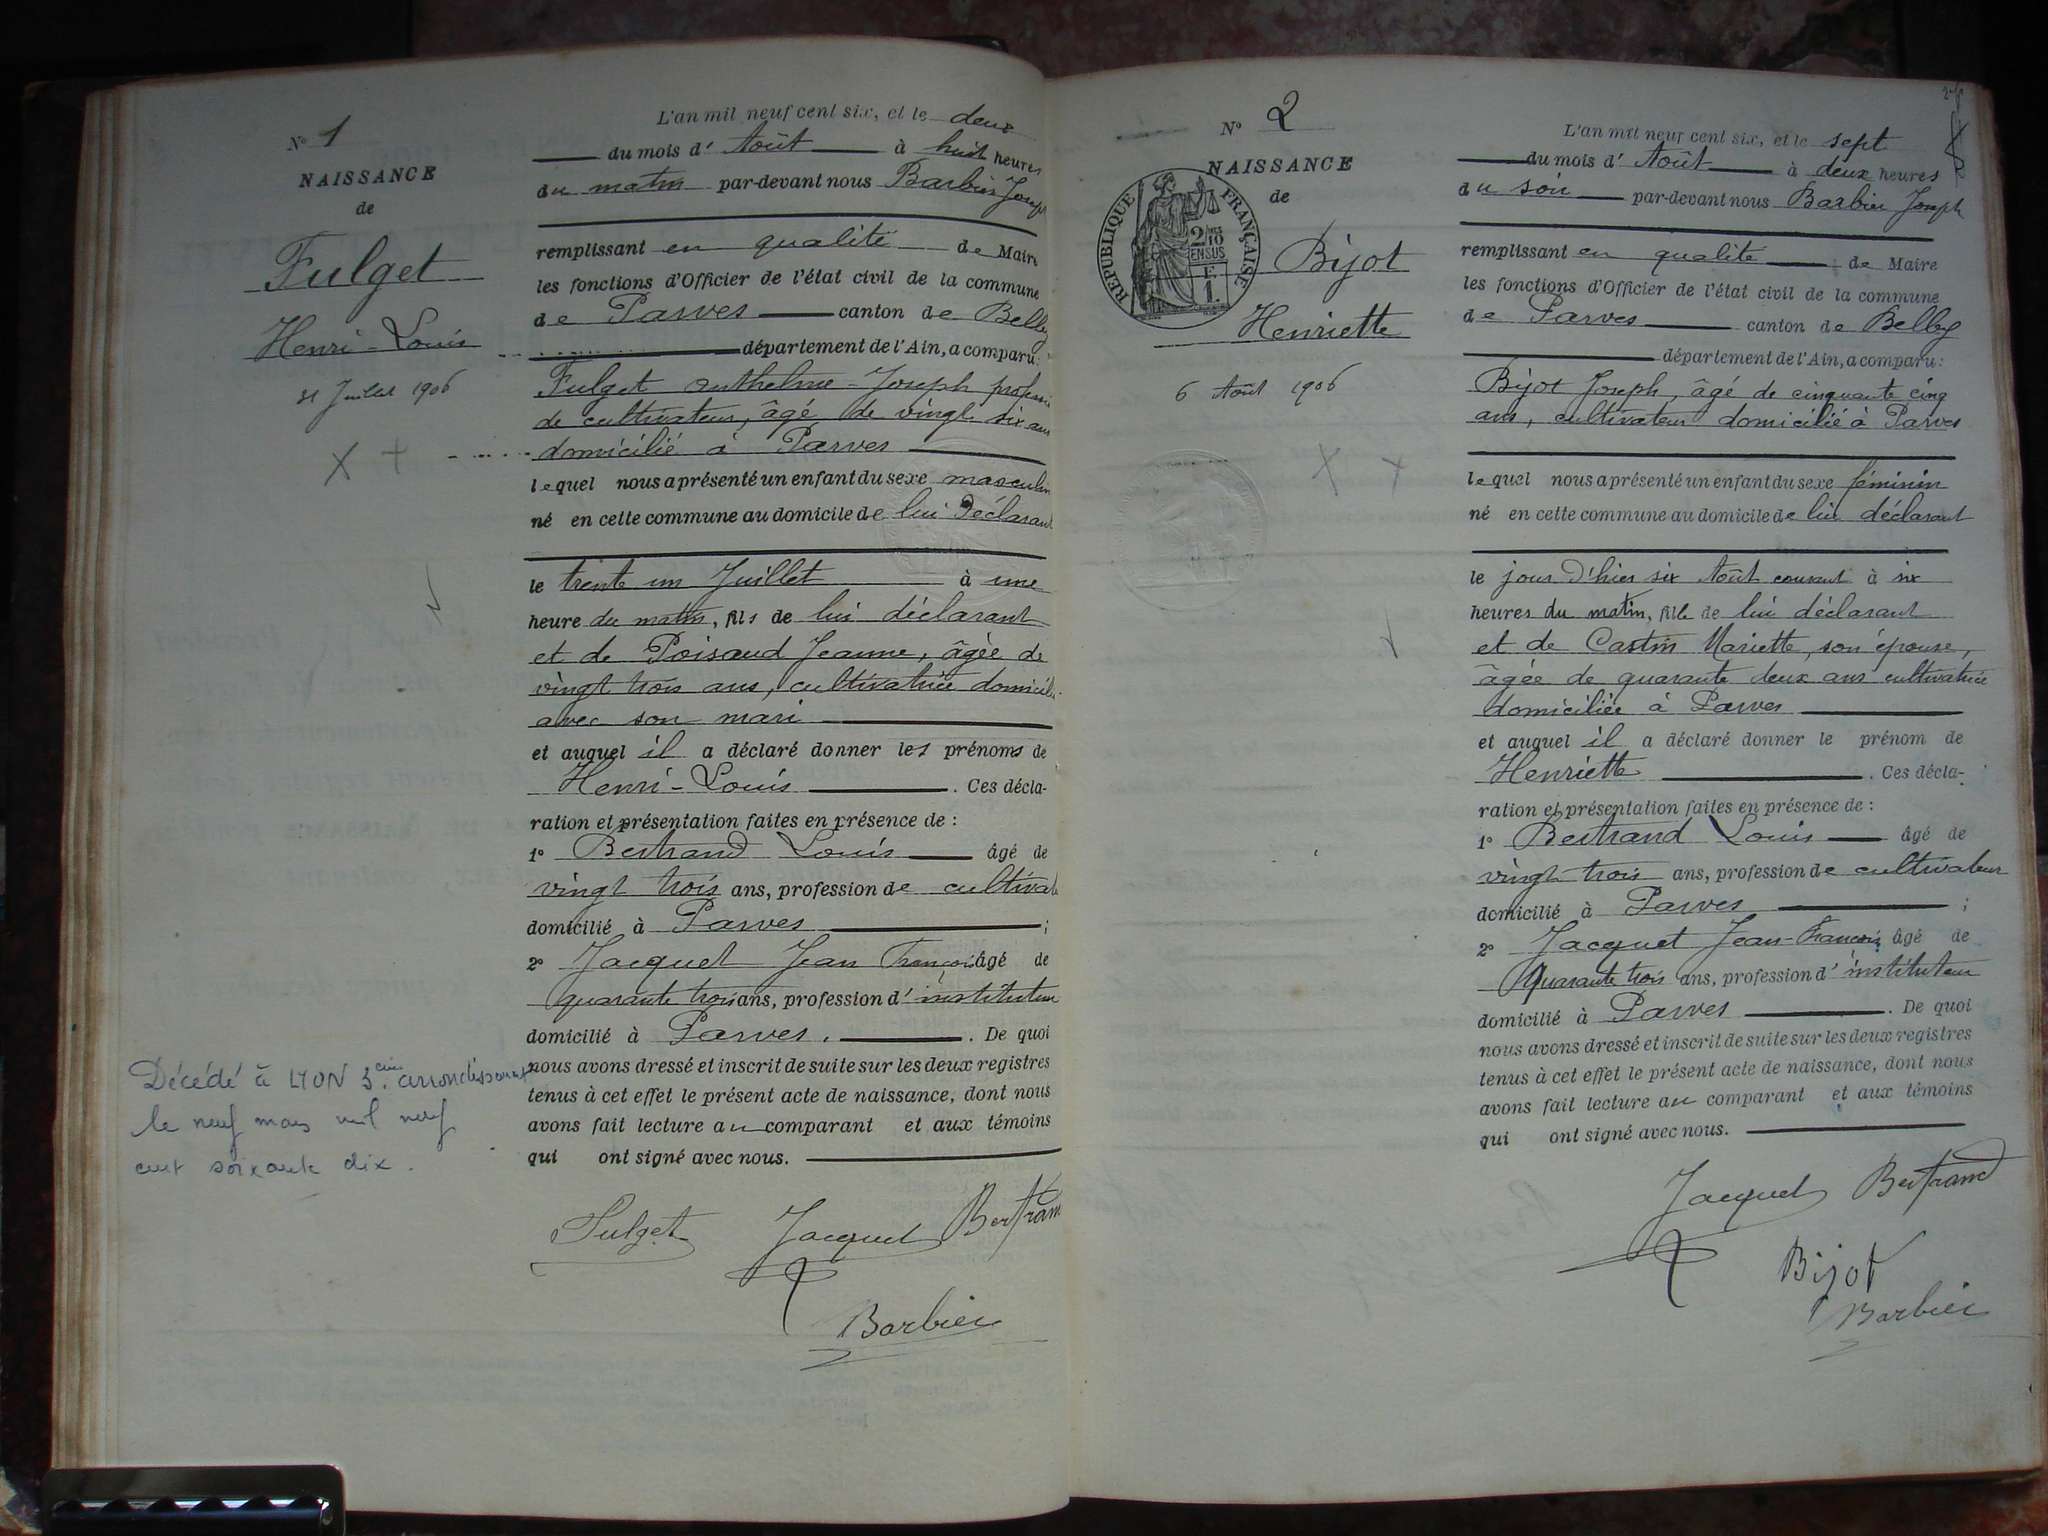 N° 1
NAISSANCE
de
Fulget
Henri-Louis
31 Juillet 1906
Décédé à LYON 3ème arrondissement
le neuf mars mil neuf
cent soixante dix.
L'an mil neuf cent six, et le deux
du mois d'Août à huit heures
du matin par-devant nous Barbier Joseph
remplissant en qualité de Maire
les fonctions d'Officier de l'état civil de la commune
de Parves canton de Belley
département de l'Ain, a comparu:
Fulget Anthelme-Joseph profession
de cultivateur, âgé de vingt six ans
domicilié à Parves
lequel nous a présenté un enfant du sexe masculin
né en cette commune au domicile de lui déclarant
le trente un Juillet à une
heure du matin, fils de lui déclarant
et de Poisaud Jeanne, âgée de
vingt trois ans, cultivatrice
avec son mari
et auquel il a déclaré donner les prénoms de
Henri-Louis. Ces décla-
ration et présentation faites en présence de :
1° Bertrand Louis âgé de
vingt trois ans, profession de cultivat
domicilié à Parves ;
2° Jacquet Jean François âgé de
quarante trois ans, profession d'instituteur
domicilié à Parves. De quoi
nous avons dressé et inscrit de suite sur les deux registres
tenus à cet effet le présent acte de naissance, dont nous
avons fait lecture au comparant et aux témoins
qui ont signé avec nous.
Fulget Jacquet Bertrand
Barbier
N° 2
NAISSANCE
de
REPUBLIQUE FRANÇAISE
2/10 EN SUS
F.
1.
Bijot
Henriette
6 Août 1906
L'an mil neuf cent six, et le sept
du mois d'Août à deux heures
du soir par-devant nous Barbier Joseph
remplissant en qualité de Maire
les fonctions d'Officier de l'état civil de la commune
de Parves canton de Belley
département de l'Ain, a comparu:
Bijot Joseph, âgé de cinquante cinq
ans, cultivateur domicilié à Parves
lequel nous a présenté un enfant du sexe féminin
né en cette commune au domicile de lui déclarant
le jour d'hier six Août courant à six
heures du matin, fille de lui déclarant
et de Castin Mariette, son épouse,
âgée de quarante deux ans cultivatrice
domiciliée à Parves
et auquel il a déclaré donner le prénom de
Henriette. Ces décla-
ration et présentation faites en présence de :
1° Bertrand Louis âgé de
vingt trois ans, profession de cultivateur
domicilié à Parves ;
2° Jacquet Jean-François âgé de
Quarante trois ans, profession d'instituteur
domicilié à Parves. De quoi
nous avons dressé et inscrit de suite sur les deux registres
tenus à cet effet le présent acte de naissance, dont nous
avons fait lecture au comparant et aux témoins
qui ont signé avec nous.
Jacquet Bertrand
Bijot
Barbier